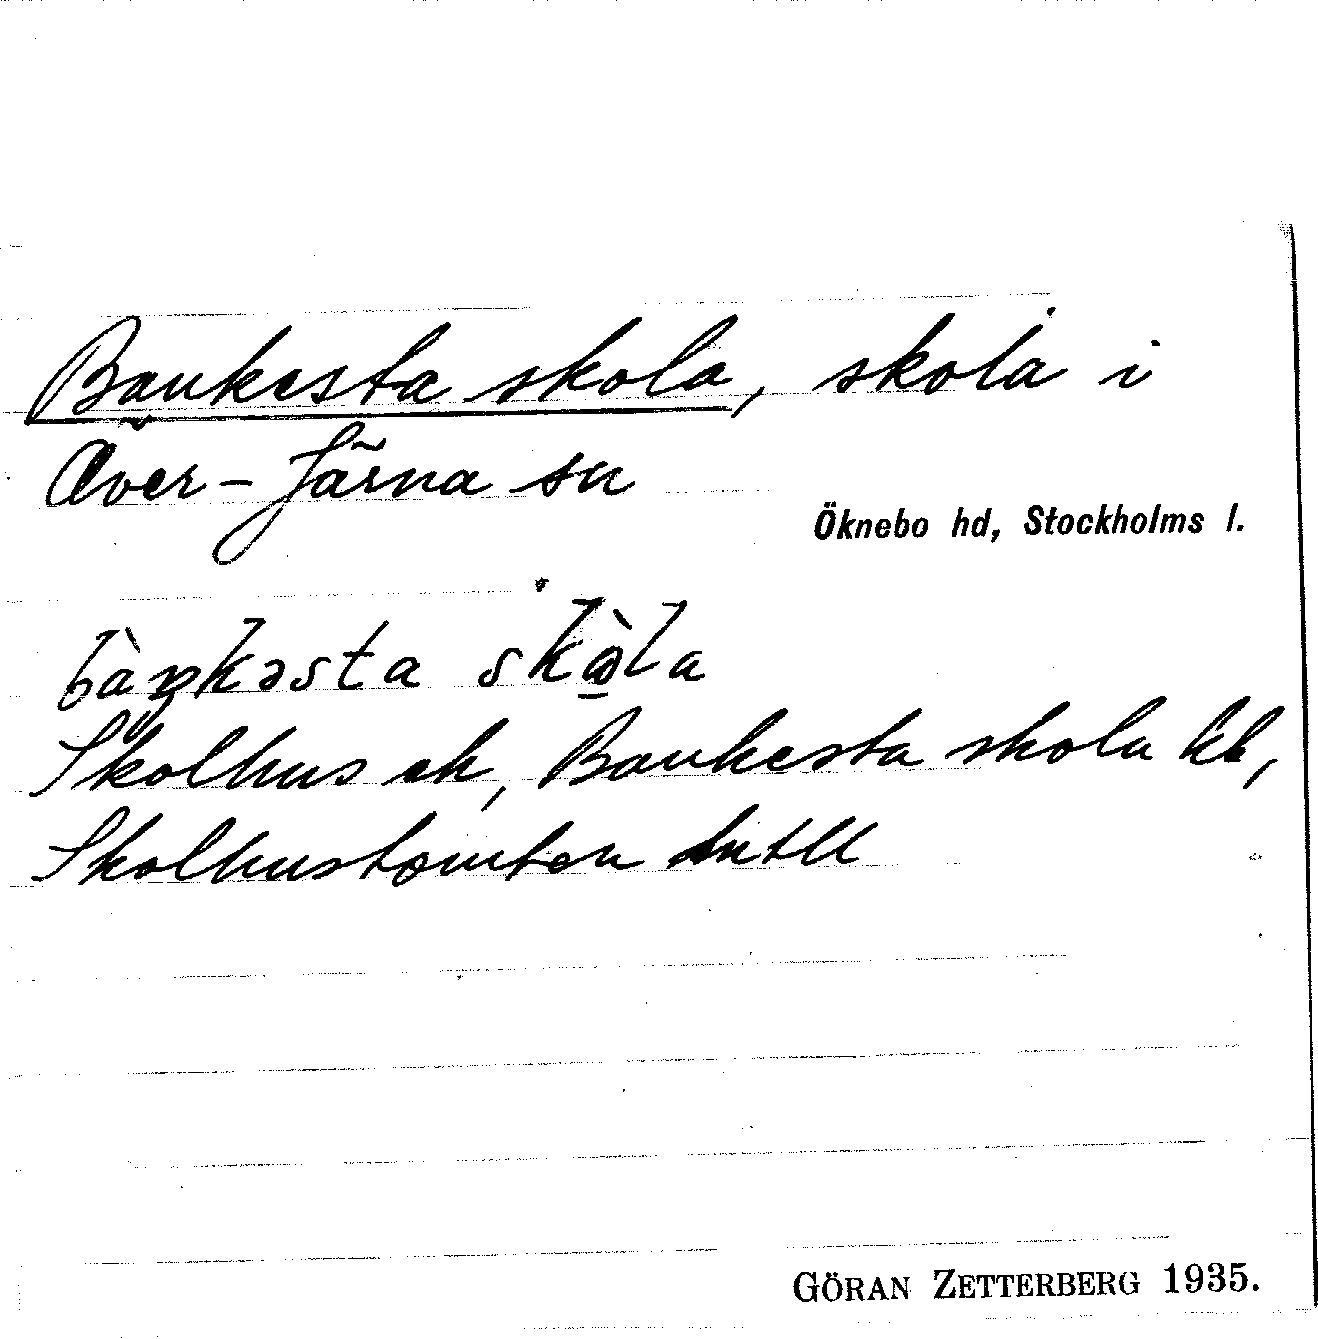 Bankesta skola, skola i
Över-Järna sn
Öknebo hd, Stockholms l.
bàŋkəsta skᴔ̀la
Skolhus ek, Bankesta skola kb,
Skolhustomten
GÖRAN ZETTERBERG 1935.